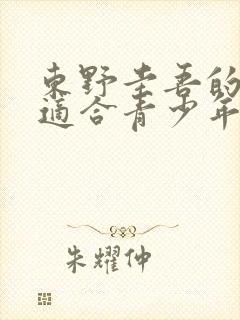 東野圭吾的
適合青少年
朱耀仲